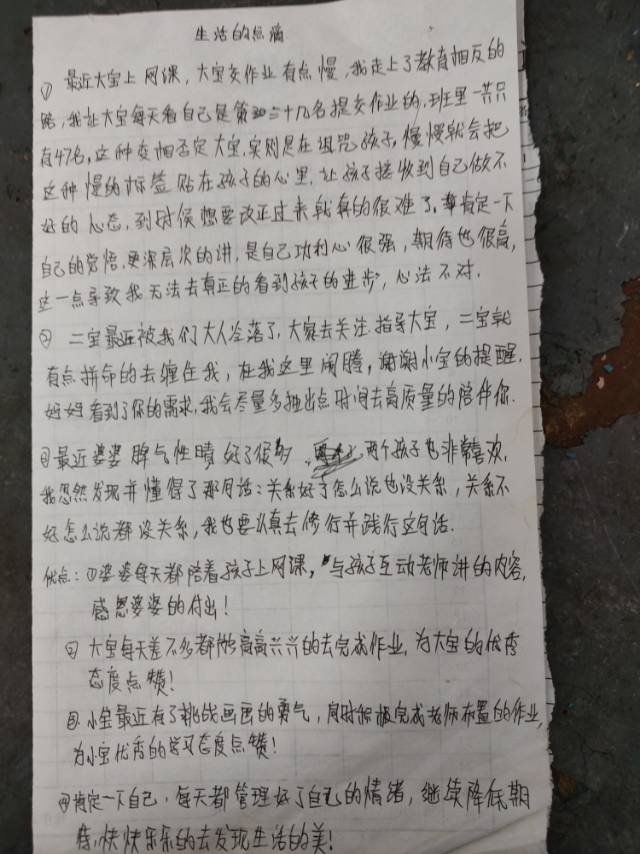 生活的点滴
① 最近大宝上网课，大宝交作业有点慢，我走上了教育相反的
路，我让大宝每天看自己是第三十几名提交作业的，班里一共只
有47名，这种变相否定大宝，实则是在诅咒孩子，慢慢就会把
这种慢的标签贴在孩子的心里，让孩子接收到自己做不
好的心态，到时候想要改正过来就真的很难了，肯定一下
自己的觉悟，更深层次的讲，是自己功利心很强，期待也很高，
这一点导致我无法去真正的看到孩子的进步，心法不对.
② 二宝最近被我们大人冷落了，大家去关注指导大宝，二宝就
有点拼命的去缠住我，在我这里闹腾，谢谢小宝的提醒，
妈妈看到了你的需求，我会尽量多抽出点时间去高质量的陪伴你.
③最近婆婆脾气性晴好了很多，两个孩子也非常喜欢，
我忽然发现并懂得了那句话：关系好了怎么说也没关系，关系不
好怎么说都没关系，我也要认真去修行并践行这句话.
优点：①婆婆每天都陪着孩子上网课，与孩子互动老师讲的内容，
感恩婆婆的付出！
② 大宝每天差不多都能高高兴兴的去完成作业，为大宝的优秀
态度点赞！
③小宝最近有了挑战画画的勇气，同时积极完成老师布置的作业，
为小宝优秀的学习态度点赞！
④肯定一下自己，每天都管理好了自己的情绪，继续降低期
待，快快乐乐的去发现生活的美！